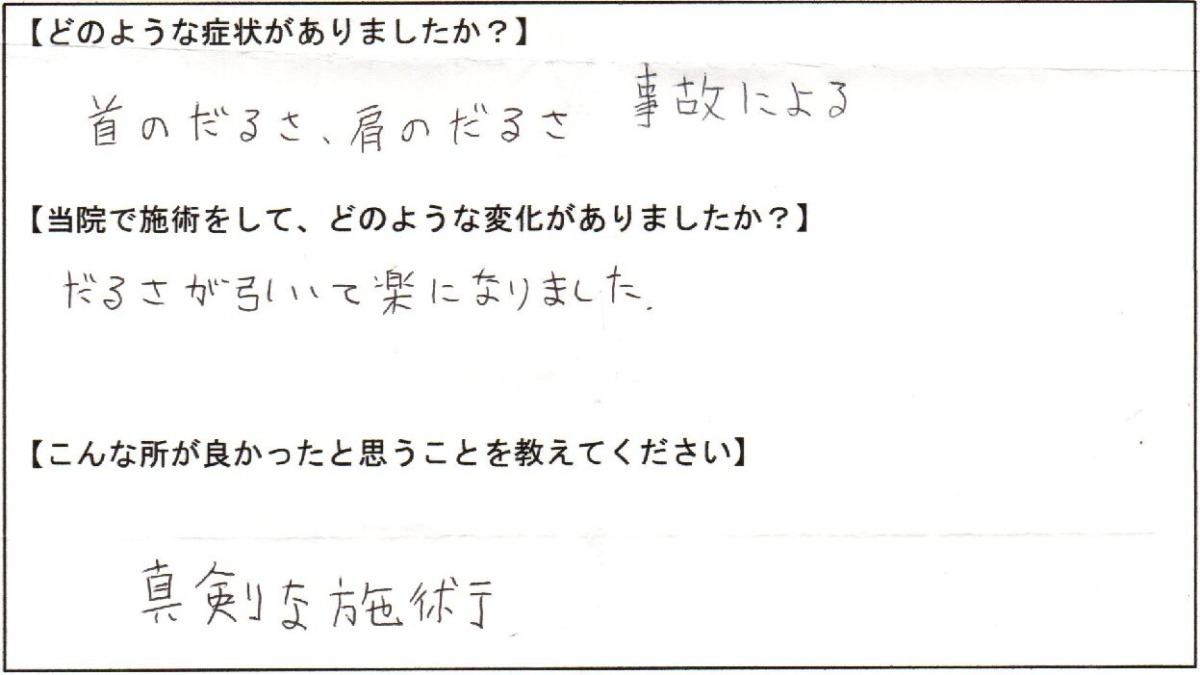 【どのような症状がありましたか？】
首のだるさ、肩のだるさ 事故による
【当院で施術をして、どのような変化がありましたか？】
だるさが引いて楽になりました.
【こんな所が良かったと思うことを教えてください】
真剣な施術